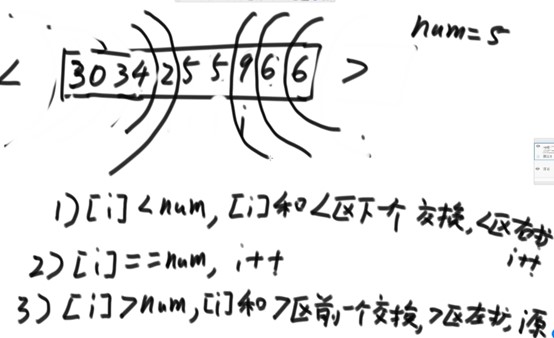 num=5
< 3 0 3 4 2 5 5 9 6 6 >
i
1) [i] < num, [i]和<区下一个 交换, <区右扩
i++
2) [i] == num, i++
3) [i] > num, [i]和>区前一个交换, >区左扩, i原